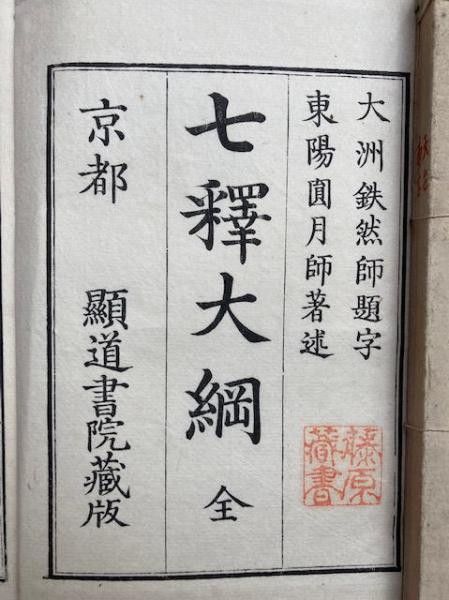 大洲鉄然師題字
東陽圓月師著述
七釋大綱 全
京都 顯道書院藏版
藤原
藏書